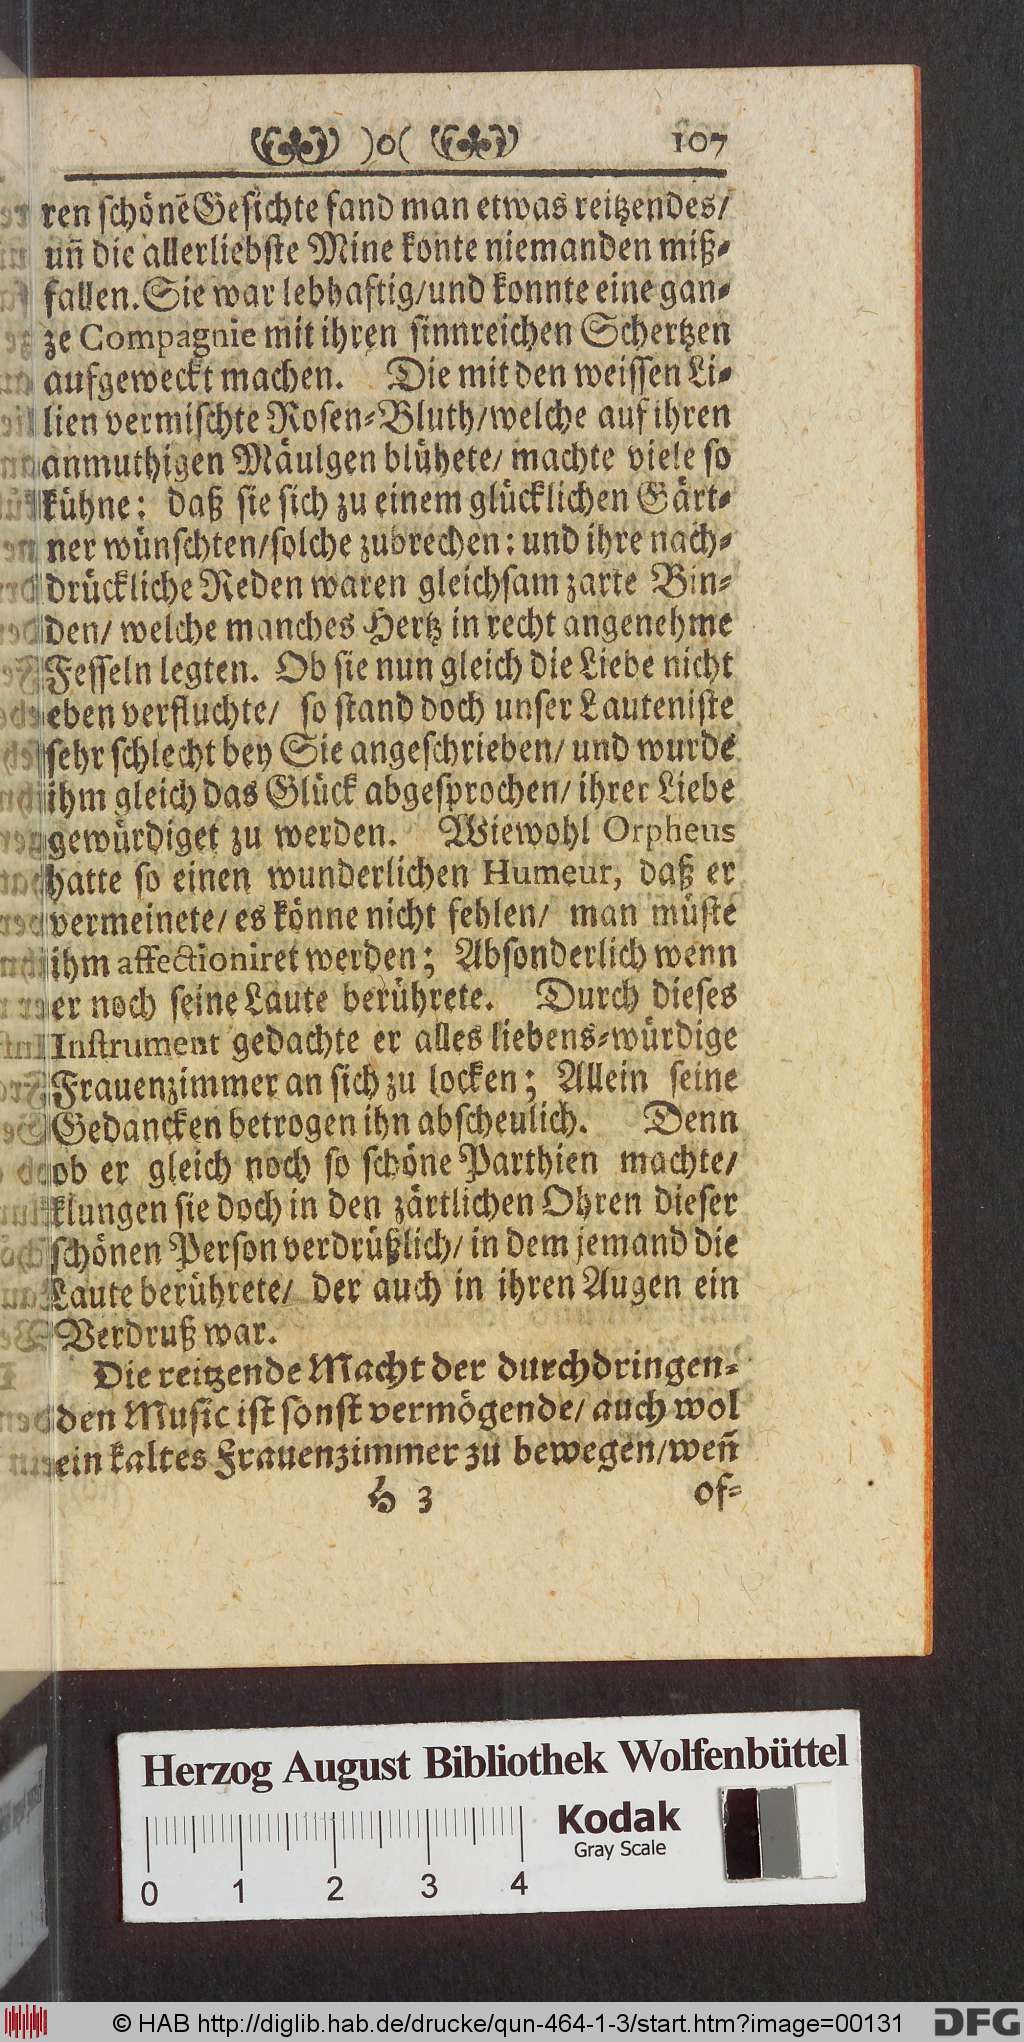 )o( 107
ren schönē Gesichte fand man etwas reitzendes/
un̄ die allerliebste Mine konte niemanden miß-
fallen. Sie war lebhafftig/und konnte eine gan-
ze Compagnie mit ihren sinnreichen Schertzen
aufgeweckt machen. Die mit den weissen Li-
lien vermischte Rosen-Bluth/welche auf ihren
anmuthigen Mäulgen blühete/ machte viele so
kühne: daß sie sich zu einem glücklichen Gärt-
ner wünschten/solche zubrechen: und ihre nach-
drückliche Reden waren gleichsam zarte Bin-
den/ welche manches Hertz in recht angenehme
Fesseln legten. Ob sie nun gleich die Liebe nicht
eben verfluchte/ so stand doch unser Lauteniste
sehr schlecht bey Sie angeschrieben/ und wurde
ihm gleich das Glück abgesprochen/ ihrer Liebe
gewürdiget zu werden. Wiewohl Orpheus
hatte so einen wunderlichen Humeur, daß er
vermeinete/ es könne nicht fehlen/ man müste
ihm affectioniret werden; Absonderlich wenn
er noch seine Laute berührete. Durch dieses
Instrument gedachte er alles liebens-würdige
Frauenzimmer an sich zu locken; Allein seine
Gedancken betrogen ihn abscheulich. Denn
ob er gleich noch so schöne Parthien machte/
klungen sie doch in den zärtlichen Ohren dieser
schönen Person verdrüßlich/ in dem jemand die
Laute berührete/ der auch in ihren Augen ein
Verdruß war.
Die reitzende Macht der durchdringen-
den Music ist sonst vermögende/ auch wol
ein kaltes Frauenzimmer zu bewegen/wen̄
H 3 of-
Herzog August Bibliothek Wolfenbüttel
Kodak
Gray Scale
0 1 2 3 4
© HAB http://diglib.hab.de/drucke/qun-464-1-3/start.htm?image=00131
DFG